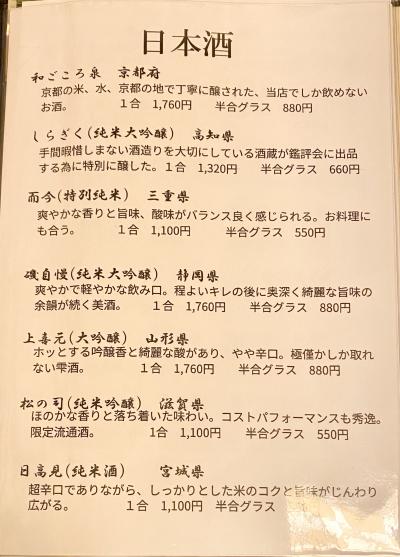 日本酒
和ごころ泉　京都府
京都の米、水、京都の地で丁寧に醸された、当店でしか飲めない
お酒。　1合　1,760円　半合グラス　880円
しらぎく(純米大吟醸)　高知県
手間暇惜しまない酒造りを大切にしている酒蔵が鑑評会に出品
する為に特別に醸した。1合　1,320円　半合グラス　660円
而今(特別純米)　三重県
爽やかな香りと旨味、酸味がバランス良く感じられる。お料理に
も合う。　1合　1,100円　半合グラス　550円
磯自慢(純米大吟醸)　静岡県
爽やかで軽やかな飲み口。程よいキレの後に奥深く綺麗な旨味の
余韻が続く美酒。　1合　1,760円　半合グラス　880円
上喜元(大吟醸)　山形県
ホッとする吟醸香と綺麗な酸があり、やや辛口。極僅かしか取れ
ない雫酒。　1合　1,760円　半合グラス　880円
松の司(純米吟醸)　滋賀県
ほのかな香りと落ち着いた味わい。コストパフォーマンスも秀逸。
限定流通酒。　1合　1,100円　半合グラス　550円
日高見(純米酒)　宮城県
超辛口でありながら、しっかりとした米のコクと旨味がじんわり
広がる。　1合　1,100円　半合グラス